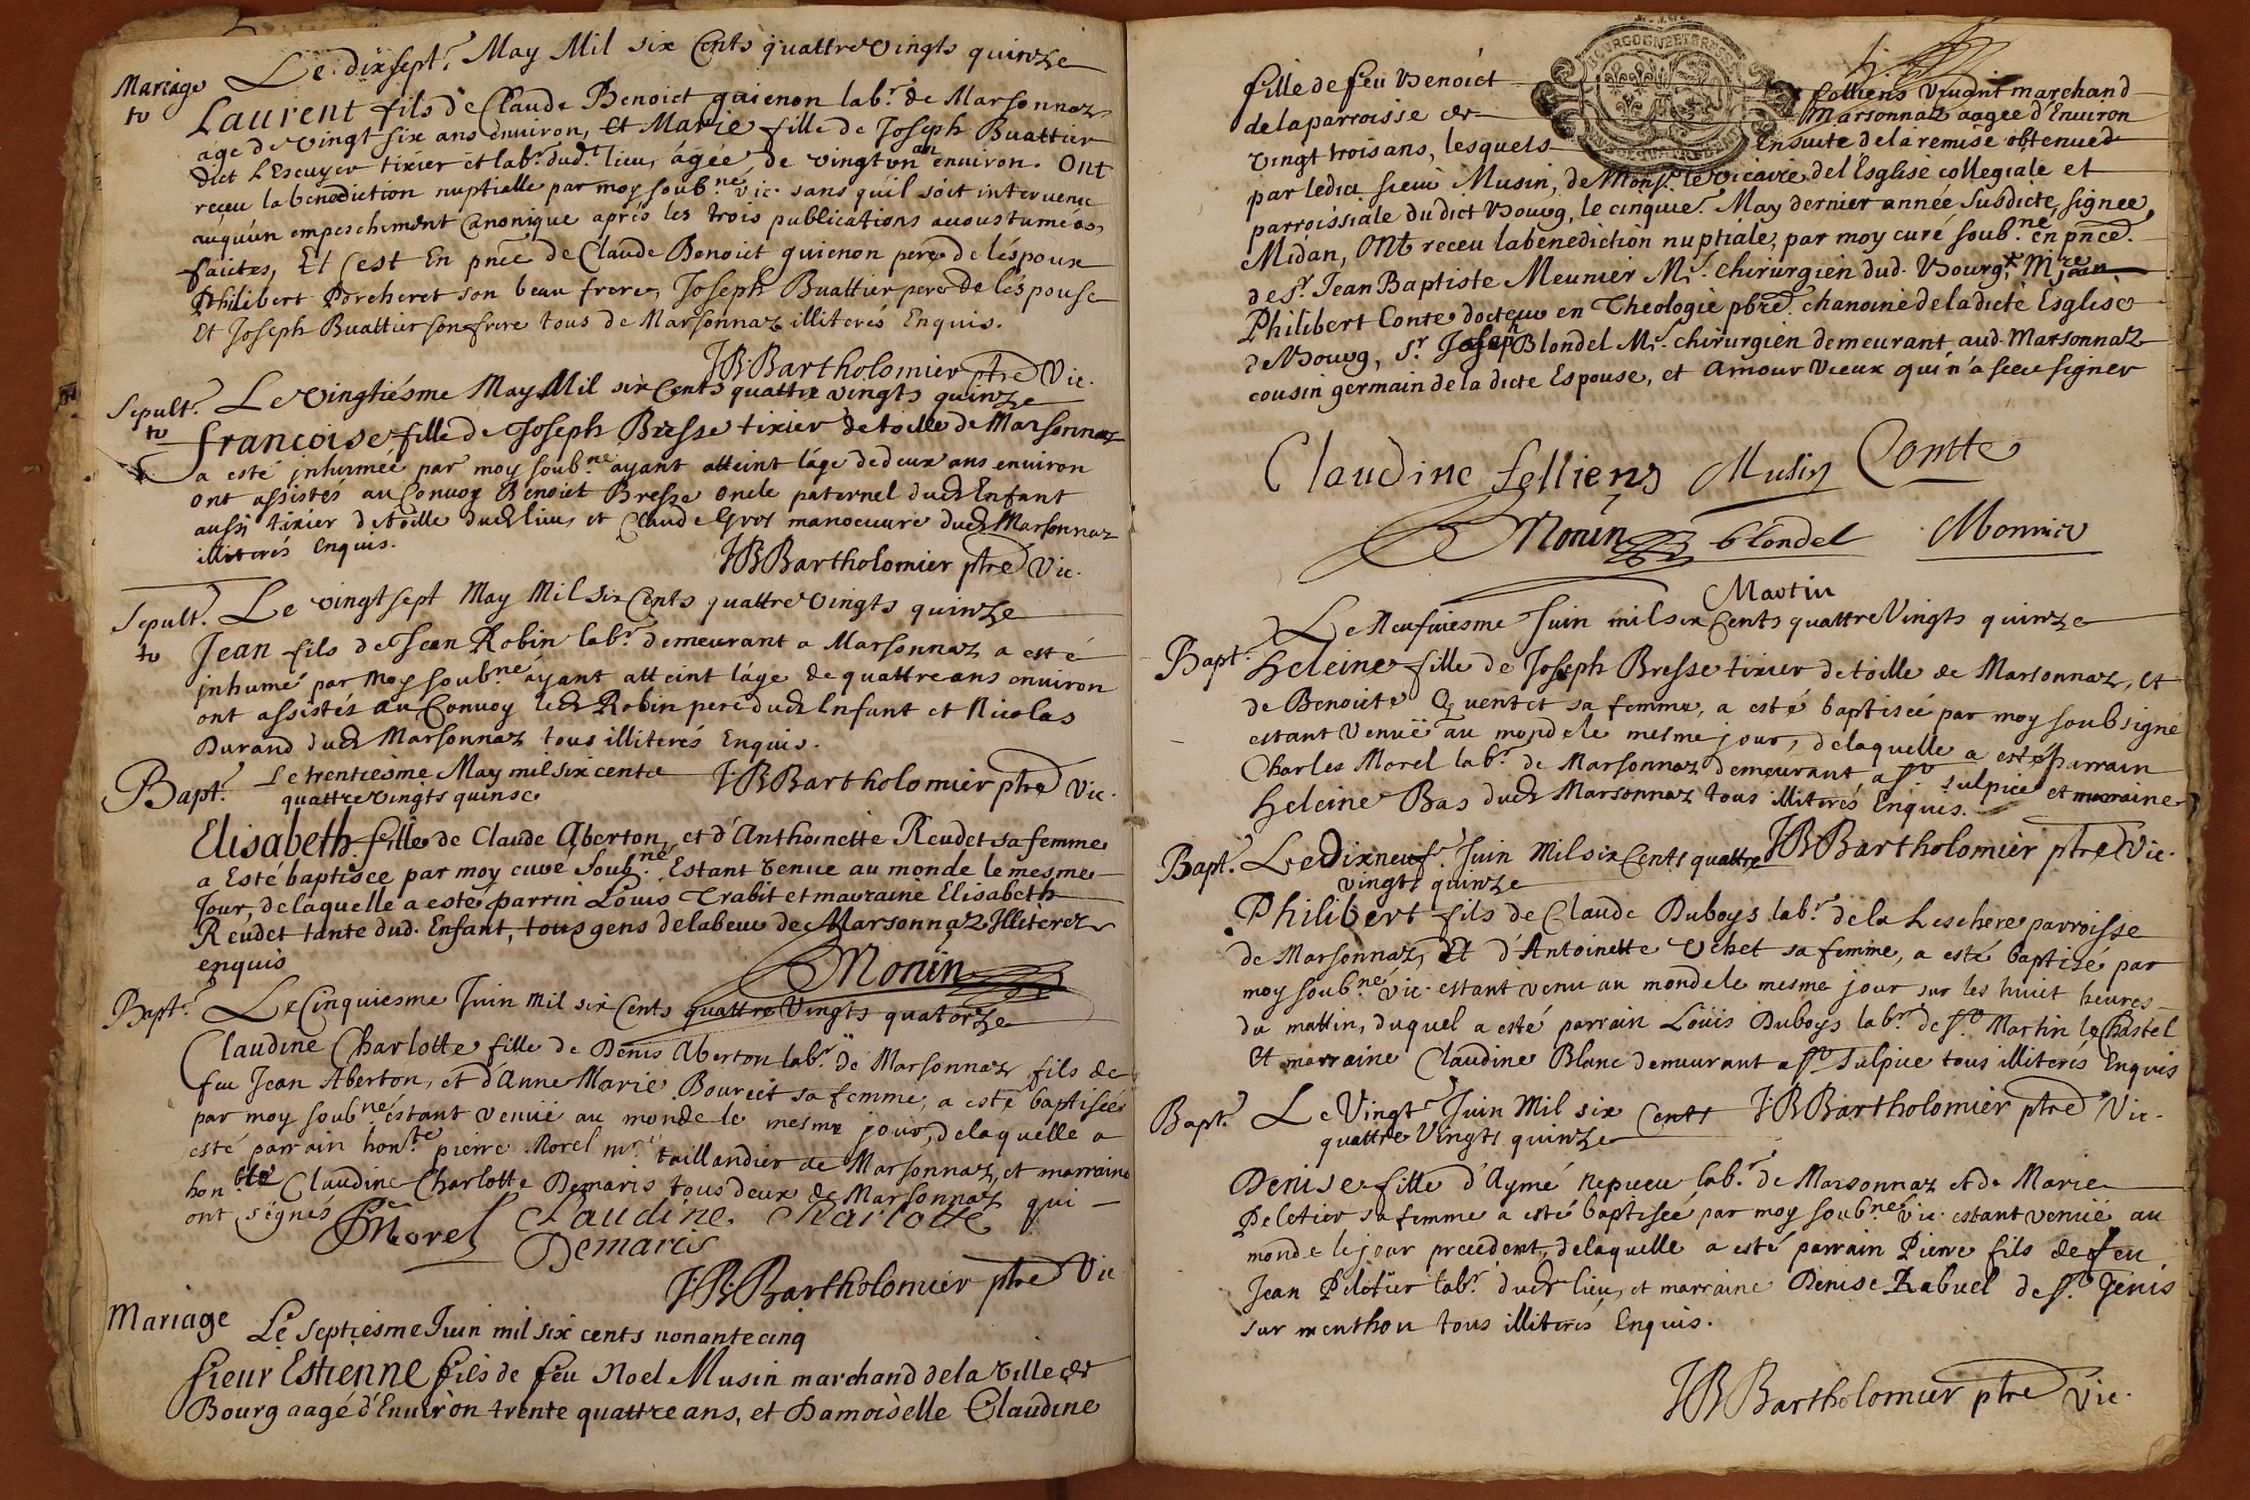 Mariage
tv
Le dixsept.e May Mil six Cents quattre vingts quinze
Laurent fils de Claude Benoict guienon lab.r de Marsonnaz
age de vingt six ans environ, et Marie fille de Joseph Buattier
dict L'Escuyer tixier et lab.r dud.t lieu, ágée de vingt vn an environ. Ont
receu la benediction nuptielle par moy soub.né vic. sans qu'il soit intervenu
auqu'un empeschement Canonique aprés les trois publications acoustumées,
faictes, Et C'est En pnce de Claude Benoict guienon pere de léspoux
Philibert Porcheret son beau frere, Joseph Buattier pere de léspouse
Et Joseph Buattier son frere tous de Marsonnaz illiterés Enquis.
JB.Bartholomier ptre Vic.
Sepult.e
tv
Le vingtiésme May Mil six Cents quattre vingts quinze
françoise fille de Joseph Bresse tixier de toille de Marsonnaz
a esté inhumée par moy soub.né ayant atteint láge de deux ans environ
ont assistés au Convoy Benoict Bresse oncle paternel dud Enfant
aussi tixier de toille dud lieu, et Claude Gros manoeuvre dud Marsonnaz
illiterés enquis.
JBBartholomier ptre Vic.
Sepult.e
tv
Le vingt sept May Mil six Cents quattre vingts quinze
Jean fils de Jean Robin lab.r demeurant a Marsonnaz a esté
inhumé par moy soub.né ayant atteint láge de quattre ans environ
ont assistés au Convoy led Robin pere dud Enfant et Nicolas
Durand dud Marsonnaz tous illiterés Enquis.
J.BBartholomier ptre Vic.
Bapt.e
Le trentiesme May mil six cents
quattre vingts quinse
Elisabeth fille de Claude Aberton, et d'Anthoinette Reudet sa femme
a Esté baptisée par moy curé Soub.né Estant venue au monde le mesme
Jour, de laquelle a esté parrin Louis Trabit et mauraine Elisabeth
Reudet tante dud. Enfant, tous gens de labeur de Marsonnaz Illiterez
enquis
Monin
Bapt.e
Le Cinquiesme Juin mil six Cents quattre Vingts quatorze
Claudine Charlotte fille de Denis Aberton lab.r de Marsonnaz fils de
feu Jean Aberton, et d'Anne Marie Boureit sa femme, a esté baptisée
par moy soub.né éstant venuë au monde le mesme jour, de laquelle a
esté parrain hon.ste pierre Morel m.r taillandier de Marsonnaz, et marraine
hon.ble Claudine Charlotte Demaris tous deux de Marsonnaz qui
ont signés
P Morel
Claudine Charlotte
Demaris
J.B.Bartholomier ptre Vic
Mariage
Le septiesme Juin mil six cents nonante cinq
Sieur Estienne fils de feu Noel Musin marchand de la ville de
Bourg aagé d'Environ trente quattre ans, et Damoiselle Claudine
fille de feu Benoict felliens vivant marchand
de la parroisse de Marsonnaz aagee d'Environ
vingt trois ans, lesquels Ensuite de la remise obtenue
par ledict sieur Musin, de Mons.r le vicaire de l'Esglise collegiale et
parroissiale du dict Bourg, le cinquie.e May dernier année susdicte, signee,
Midan, Ont receu la benediction nuptiale, par moy curé soub.né, en pnce.
de S.r Jean Baptiste Meunier M.e chirurgien dud. Bourg, M.re Jean
Philibert Conte docteur en Theologie pbre. chanoine de la dicte Esglise
de Bourg, S.r Joseph Blondel M.e chirurgien demeurant aud. Marsonnaz
cousin germain de la dicte Espouse, et Amour Vieux qui n'a sceu signer
Claudine felliens Musin Comtte
Monin blondel Monnier
Martin
Bapt.e
Le Neufuiesme Juin mil six Cents quattre Vingts quinze
Heleine fille de Joseph Bresse tixier de toille de Marsonnaz, et
de Benoite Quentet sa femme, a esté baptisée par moy soubsigné
estant venuë au monde le mesme jour, de laquelle a esté parrain
Charles Morel lab.r de Marsonnaz demeurant a S.t Sulpice et marraine
Heleine Bas dud Marsonnaz tous illiterés Enquis.
JBBartholomier ptre Vic.
Bapt.e
Le Dixneuf.e Juin Mil six Cents quattre
vingts quinze
Philibert fils de Claude Duboys lab.r de la Leschere parroisse
de Marsonnaz, Et d'Antoinette Vehet sa femme, a esté baptisé par
moy soub.né vic. estant venu au monde le mesme jour sur les huict heures
du mattin, duquel a esté parrain Louis Duboys lab.r de S.t Martin le Chastel
et marraine Claudine Blanc demeurant a S.t Sulpice tous illiterés Enquis
J.BBartholomier ptre Vic.
Bapt.e
Le Vingt.e Juin Mil six Cents
quattre Vingts quinze
Denise fille d'Aymé Nepveu lab.r de Marsonnaz et de Marie
Peletier sa femme a esté baptisée par moy soub.né vic. estant venuë au
monde le jour precedent, de laquelle a esté parrain Pierre fils de feu
Jean Peletier lab.r dud lieu, et marraine Denise Rabuel de S.t Genis
sur menthon tous illiterés Enquis.
JBBartholomier ptre Vic.